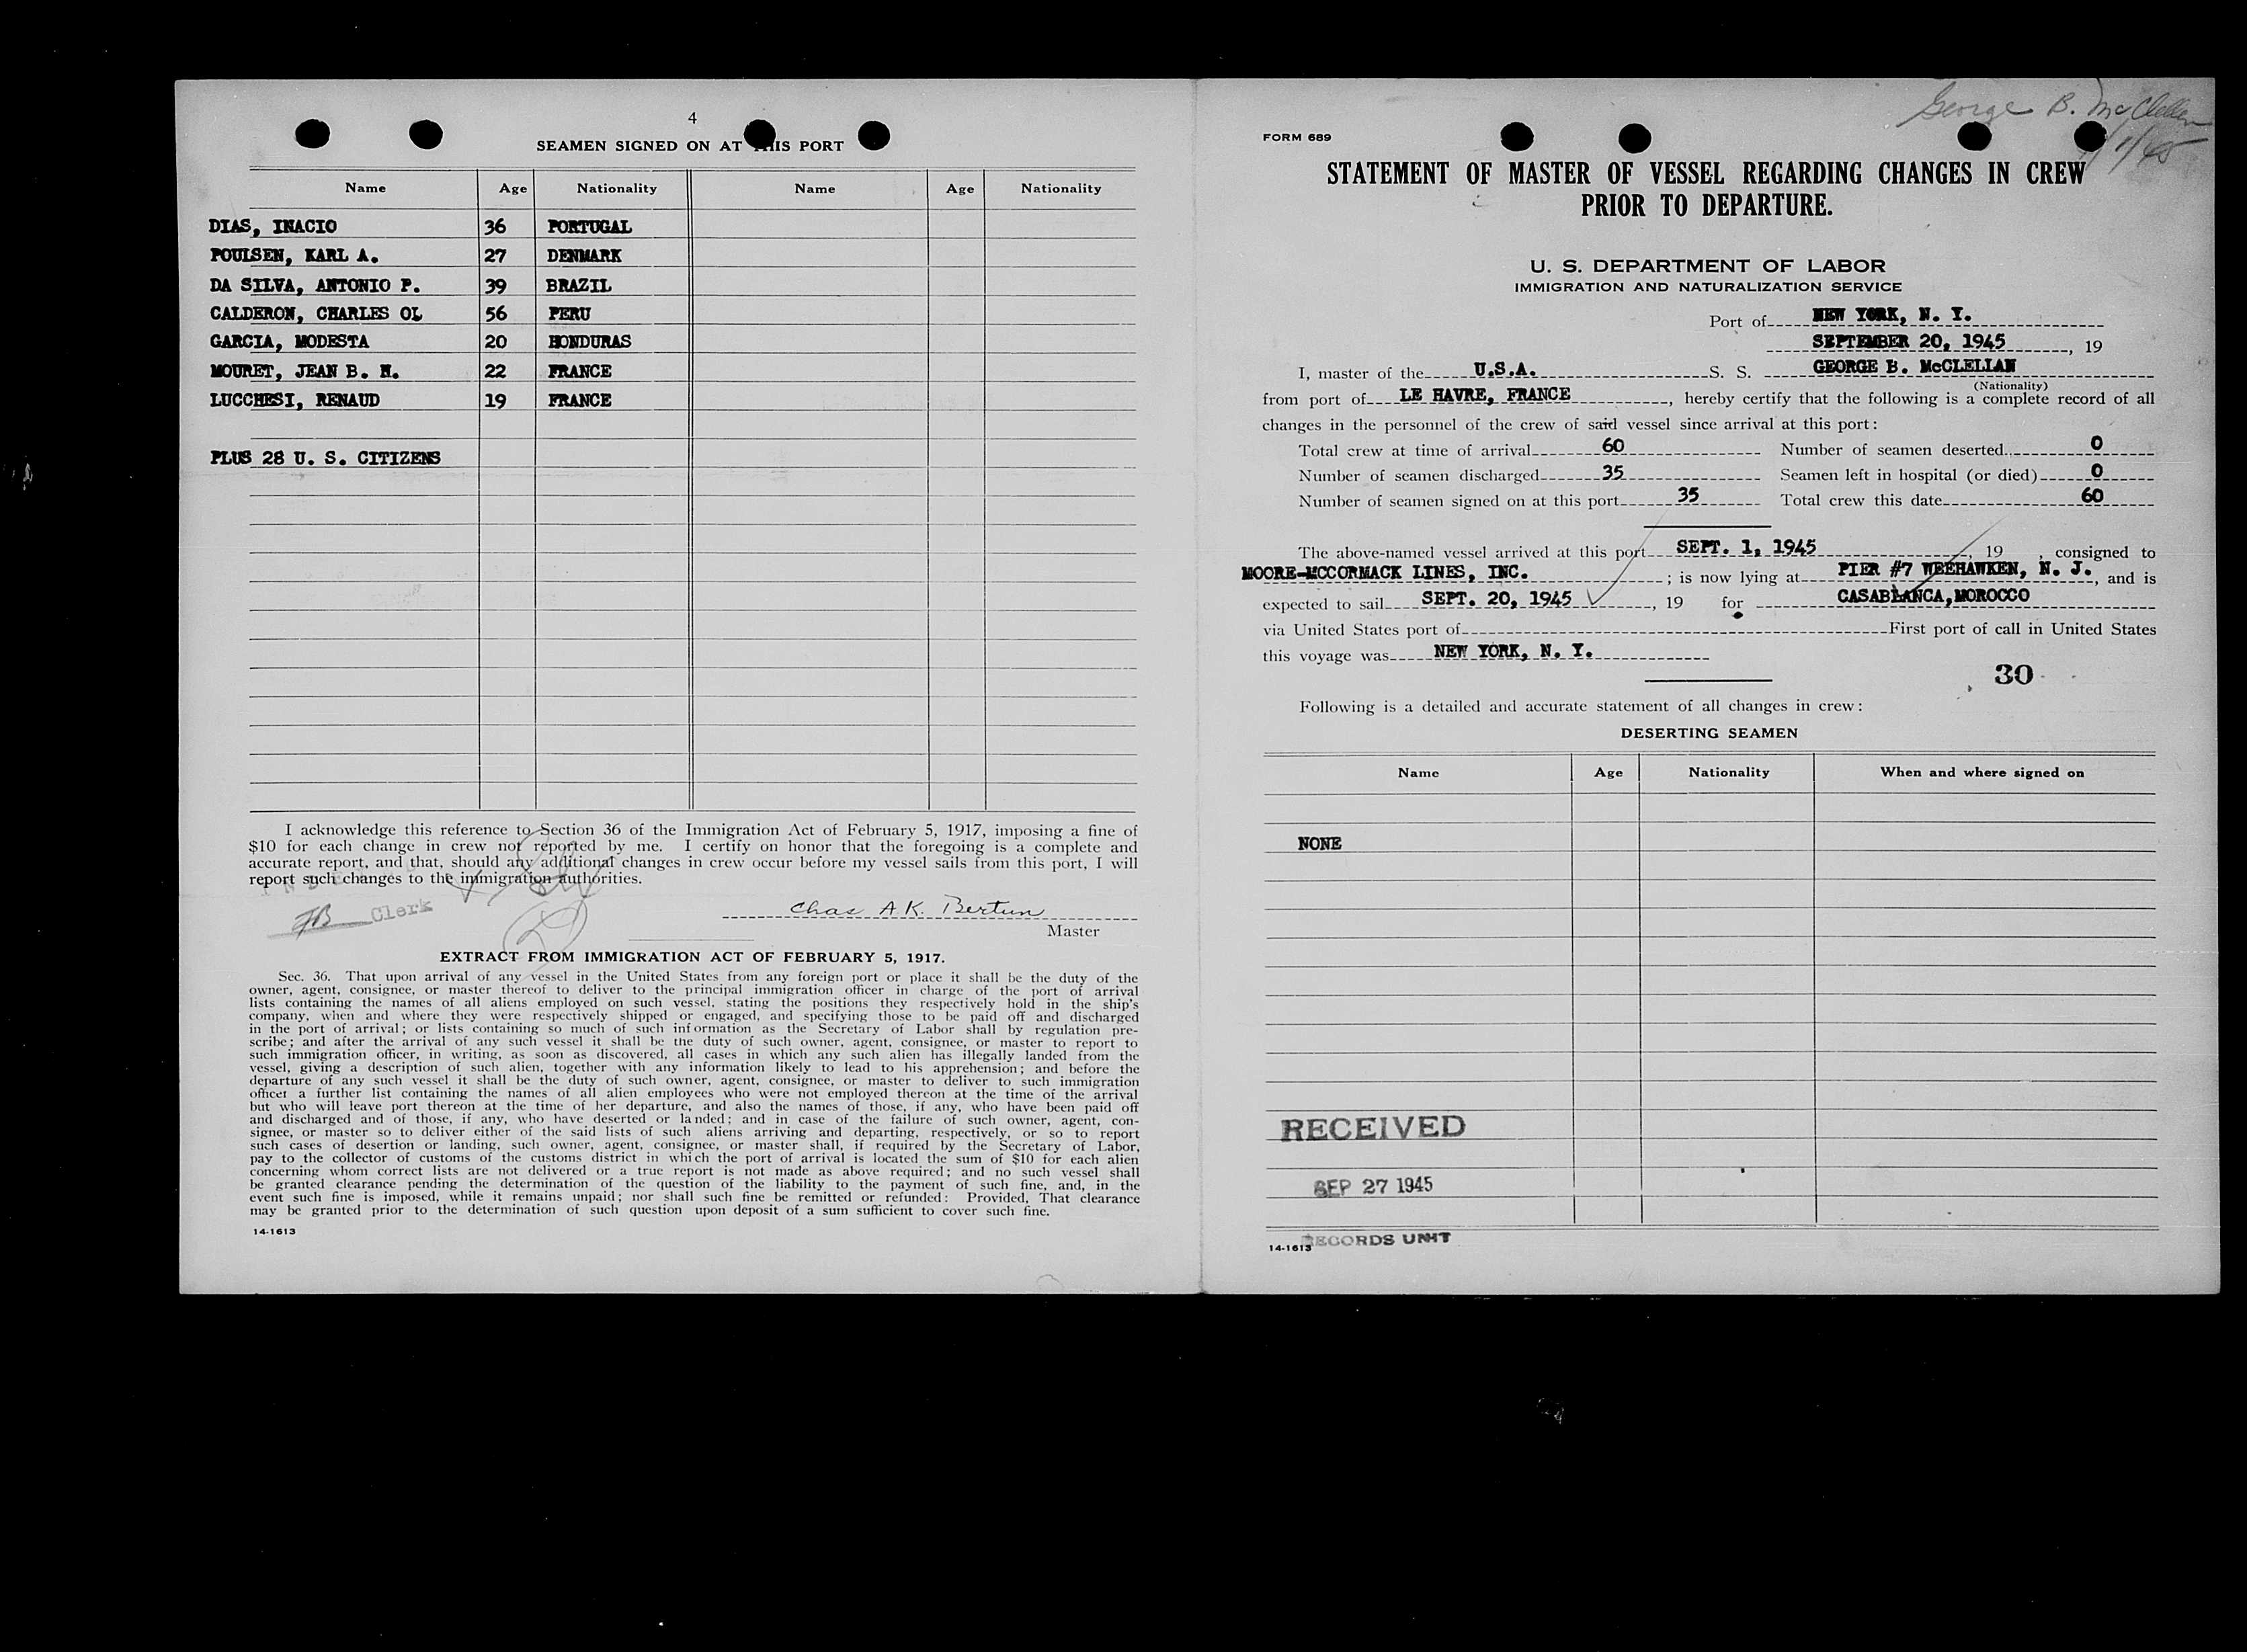 4
SEAMEN SIGNED ON AT THIS PORT
Name Age Nationality Name Age Nationality
DIAS, INACIO 36 PORTUGAL
POULSEN, KARL A. 27 DENMARK
DA SILVA, ANTONIO P. 39 BRAZIL
CALDERON, CHARLES OL 56 PERU
GARCIA, MODESTA 20 HONDURAS
MOURET, JEAN B. H. 22 FRANCE
LUCCHESI, RENAUD 19 FRANCE
PLUS 28 U. S. CITIZENS
I acknowledge this reference to Section 36 of the Immigration Act of February 5, 1917, imposing a fine of
$10 for each change in crew not reported by me. I certify on honor that the foregoing is a complete and
accurate report, and that, should any additional changes in crew occur before my vessel sails from this port, I will
report such changes to the immigration authorities.
Clerk
Chas A.K. Bertun
Master
EXTRACT FROM IMMIGRATION ACT OF FEBRUARY 5, 1917.
Sec. 36. That upon arrival of any vessel in the United States from any foreign port or place it shall be the duty of the
owner, agent, consignee, or master thereof to deliver to the principal immigration officer in charge of the port of arrival
lists containing the names of all aliens employed on such vessel, stating the positions they respectively hold in the ship's
company, when and where they were respectively shipped or engaged, and specifying those to be paid off and discharged
in the port of arrival; or lists containing so much of such information as the Secretary of Labor shall by regulation pre-
scribe; and after the arrival of any such vessel it shall be the duty of such owner, agent, consignee, or master to report to
such immigration officer, in writing, as soon as discovered, all cases in which any such alien has illegally landed from the
vessel, giving a description of such alien, together with any information likely to lead to his apprehension; and before the
departure of any such vessel it shall be the duty of such owner, agent, consignee, or master to deliver to such immigration
officer a further list containing the names of all alien employees who were not employed thereon at the time of the arrival
but who will leave port thereon at the time of her departure, and also the names of those, if any, who have been paid off
and discharged and of those, if any, who have deserted or landed; and in case of the failure of such owner, agent, con-
signee, or master so to deliver either of the said lists of such aliens arriving and departing, respectively, or so to report
such cases of desertion or landing, such owner, agent, consignee, or master shall, if required by the Secretary of Labor,
pay to the collector of customs of the customs district in which the port of arrival is located the sum of $10 for each alien
concerning whom correct lists are not delivered or a true report is not made as above required; and no such vessel shall
be granted clearance pending the determination of the question of the liability to the payment of such fine, and, in the
event such fine is imposed, while it remains unpaid; nor shall such fine be remitted or refunded: Provided, That clearance
may be granted prior to the determination of such question upon deposit of a sum sufficient to cover such fine.
14-1613
George B. McClellan
FORM 689
STATEMENT OF MASTER OF VESSEL REGARDING CHANGES IN CREW
PRIOR TO DEPARTURE.
U. S. DEPARTMENT OF LABOR
IMMIGRATION AND NATURALIZATION SERVICE
Port of NEW YORK, N. Y.
SEPTEMBER 20, 1945, 19
I, master of the U.S.A. S. S. GEORGE B. McCLELLAN
(Nationality)
from port of LE HAVRE, FRANCE, hereby certify that the following is a complete record of all
changes in the personnel of the crew of said vessel since arrival at this port:
Total crew at time of arrival 60 Number of seamen deserted 0
Number of seamen discharged 35 Seamen left in hospital (or died) 0
Number of seamen signed on at this port 35 Total crew this date 60
The above-named vessel arrived at this port SEPT. 1, 1945, 19 , consigned to
MOORE-MCCORMACK LINES, INC. ; is now lying at PIER #7 WEEHAWKEN, N. J., and is
expected to sail SEPT. 20, 1945, 19 for CASABLANCA, MOROCCO
via United States port of First port of call in United States
this voyage was NEW YORK, N. Y.
30
Following is a detailed and accurate statement of all changes in crew:
DESERTING SEAMEN
Name Age Nationality When and where signed on
NONE
RECEIVED
SEP 27 1945
RECORDS UNIT
14-1613